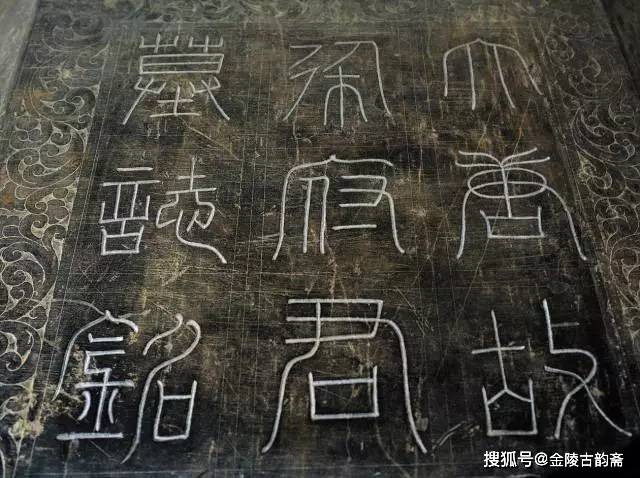 大唐故
梁府君
墓誌銘
搜狐号@金陵古韵斋